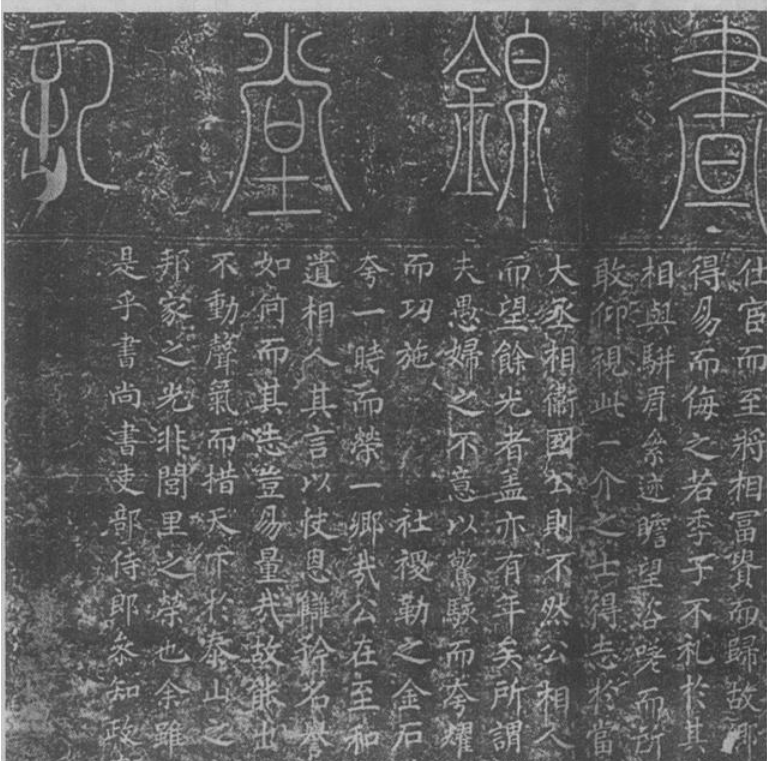 晝錦堂記
仕宦而至將相冨貴而歸故鄉
得易而侮之若季子不礼於其
相與駢肩絫迹瞻望咨嗟而所
敢仰視此一介之士得志於當
大丞相衞國公則不然公相人
而望餘光者盖亦有年矣所謂
夫愚婦之不意以驚駭而夸耀
而功施 社稷勒之金石
夸一時而榮一鄉哉公在至和
遺相人其言以快恩讎矜名譽
如何而其志豈易量哉故能出
不動聲氣而措天下於泰山之
邦家之光非閭里之榮也余雖
是乎書尚書吏部侍郎叅知政